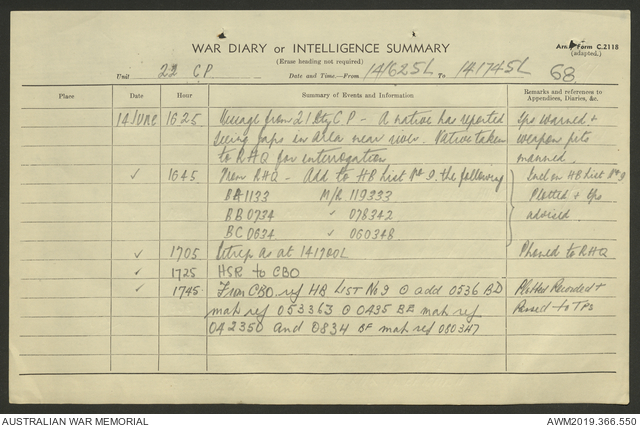 WAR DIARY or INTELLIGENCE SUMMARY
Army Form C.2118
(Erase heading not required)
(adapted.)
Unit 22 C.P. Date and Time—From 141625L To 141745L 68
Place Date Hour Summary of Events and Information Remarks and references to Appendices, Diaries, &c.
14 JUNE 1625 Message from 21 Bty C.P - A native has reported
seeing Japs in area near river. Native taken
to RHQ for interrogation
Tps warned &
weapon pits
manned.
✓ 1645 From RHQ - Add to HB List No 9 the following
BA 1133 M/R 119333
BB 0734 " 078342
BC 0634 " 060348
Incl on HB List No 9
Plotted & tps
advised
✓ 1705 Sitrep as at 141700L Phoned to RHQ
✓ 1725 HSR to CBO
✓ 1745 From CBO ref HB LIST No 9 add 0536 BD
map ref 053363 0435 BE map ref
042350 and 0834 BF map ref 080347
Plotted Recorded +
Passed to TPS
AUSTRALIAN WAR MEMORIAL
AWM2019.366.550